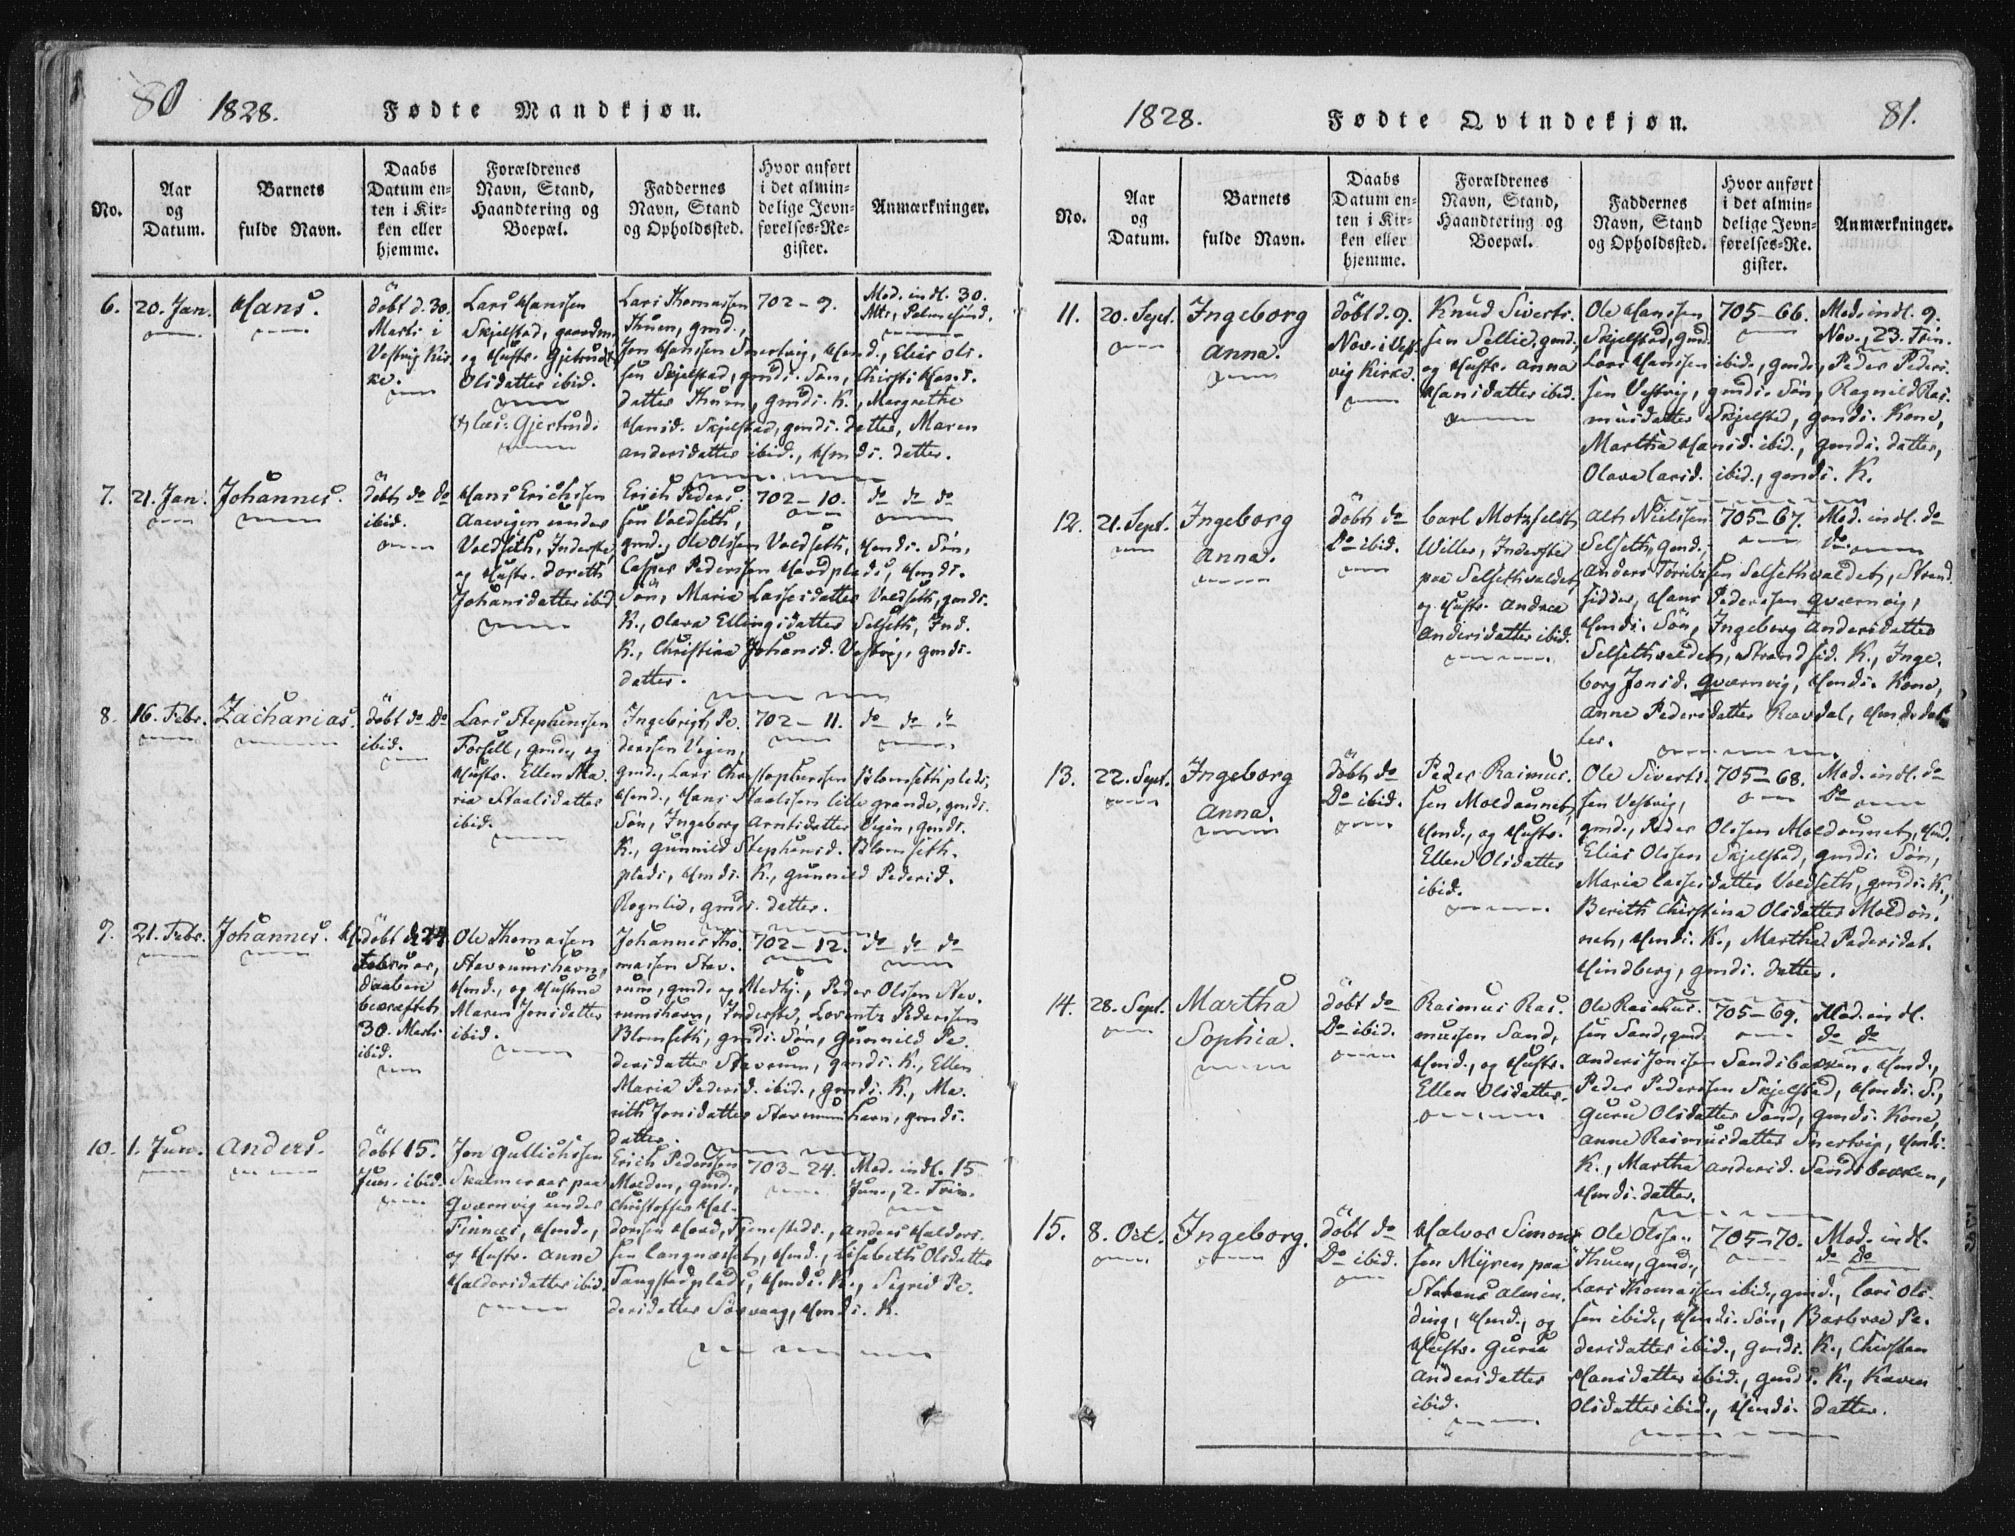 80 1828. Fødte Mandkjøn.
No.
Aar
og
Datum.
Barnets
fulde Navn.
Daabs
Datum en-
ten i Kir-
ken eller
hjemme.
Forældrenes
Navn, Stand,
Haandtering og
Boepæl.
Faddernes
Navn, Stand
og Opholdssted.
Hvor anført
i det almin-
delige Jevn-
førelses-Re-
gister.
Anmærkninger.
6. 20. Jan. Hans.
döbt d. 30.
Marts i
Vestvig Kir-
ke.
Lars Hanssen
Skjelstad, gaardm.
og Hustr. Gjetrud
Olsdatter ibid.
læs: Gjertrud.
Lars Thomassen
Thuen, gmd.,
Jon Hanssen Snertvig, Hmd., Elias Ols-
sen Skjelstad, gmds. Søn, Chirsti Hans-
datter Thuen, gmds. K., Margrethe
Hansd. Skjelstad, gmds. datter, Maren
Andersdatter ibid., Hmds. datter.
702 - 9.
Mod. indl. 30.
Mts., Palmesönd.
7. 21. Jan. Johannes.
döbt do do
ibid.
Hans Erichssen
Aarvigen under
Voldseth, Inderste,
og Hustr. Doreth
Johansdatter ibid.
Erich Peders-
sen Voldseth,
gmd., Ole Olssen Voldseth, Hmds. Søn,
Casper Pederssen Haadplads, Hmds.
Søn, Maria Lassesdatter Voldseth, gmds.
K., Olava Ellingsdatter Selseth, Ind.
K., Christina Johansd. Vestvig, gmds.
datter.
702 - 10.
do do do
8. 16. Febr. Zacharias.
döbt do Do
ibid.
Lars Stephenssen
Farsell, gmd., og
Hustr. Ellen Ma-
ria Staalsdatter
ibid.
Ingebrigt Pe-
derssen Vegen,
gmd., Lars Christopherssen Blomsethplads,
Hmd., Hans Staalssen lille grande, gmds.
Søn, Ingeborg Arntsdatter Vigen, gmds.
K., Gunnild Stephensd. Blomseth-
plads, Hmds. K., Gunnild Pedersd.
Rognlid, gmds. datter.
702 - 11.
do do do
9. 21. Febr. Johannes.
döbt d. 24
Februar,
daaben
bekræftet
30. Marts
ibid.
Ole Thomassen
Stavrumshavn,
Hmd., og Hustrue
Maren Jonsdatter
ibid.
Johannes Tho-
massen Stav-
rum, gmd. og Medhj., Peder Olssen Stav-
rumshavn, Inderste, Lorentz Pederssen
Blomseth, gmds. Søn, Gunnild Pe-
dersdatter Stavrum, gmds. K., Ellen
Maria Pedersd. ibid., gmds. K., Ma-
rith Jonsdatter Stavrumshavn, gmds.
datter.
702 - 12.
do do do
10. 1. Jun. Anders.
döbt 15.
Jun. ibid.
Jon Gullichssen
Skalmeraas paa
Qværnvig under
Finnæs, Hmd.,
og Hustr. Anne
Haldorsdatter ibid.
Erich Pederssen
Molden, gmd.,
Christoffer Hal-
dorssen Haad, Tjenestedr., Anders Haldors-
sen Langnæsset, Hmd., Lisabeth Olsdatter
Tangstadplads, Hmds. K., Sigrid Pe-
dersdatter Sörvaag, Hmds. K.
703 - 24.
Mod. indl. 15
Jun., 2. Trin.
1828. Fødte Qvindekjøn. 81.
No.
Aar
og
Datum.
Barnets
fulde Navn.
Daabs
Datum en-
ten i Kir-
ken eller
hjemme.
Forældrenes
Navn, Stand,
Haandtering og
Boepæl.
Faddernes
Navn, Stand
og Opholdssted.
Hvor anført
i det almin-
delige Jevn-
førelses-Re-
gister.
Anmærkninger.
11. 20. Sept. Ingeborg
Anna.
döbt d. 9.
Nov. i Vest-
vig Kirke.
Knud Siverts-
sen Sellid, gmd.,
og Hustr. Anna
Hansdatter ibid.
Ole Hanssen
Skjelstad, gmd.
Lars Hanssen ibid., gmds., Peder Peders-
sen Vestvig, gmds. Søn, Ragnild Ras-
musdatter Skjelstad, gmds. Kone,
Martha Hansd. ibid., gmds. datter,
Olava Larsd. ibid., gmds. K.
705 - 66.
Mod. indl. 9.
Nov., 23. Trin.
12. 21. Sept. Ingeborg
Anna.
döbt do
Do ibid.
Carl Motzfeldt
Willer, Inderste
paa Selsethvaldet,
og Hustr. Andrea
Andersdatter ibid.
Alt Nielssen
Selseth, gmd.,
Anders Toritzsen Selsethvaldet, Strand-
sidder, Hans Pederssen Qværnvig,
Hmds. Søn, Ingeborg Andersdatter
Selsethvaldet, Strandsid. K., Inge-
borg Jonsd. Qværnvig, Hmds. Kone,
Anne Pedersdatter Ravdal, Hmds. dat-
ter.
705 - 67.
Mod. indl. do
Do
13. 22. Sept. Ingeborg
Anna.
döbt do
Do ibid.
Peder Rasmus-
sen Moldounet,
Hmd., og Hustr.
Ellen Olsdatter
ibid.
Ole Siverts-
sen Vestvig,
gmd., Peder Olssen Moldounet, Hmd.
Elias Olssen Skjelstad, gmds. Søn,
Maria Lassesdatter Voldseth, gmds. K.,
Berith Chirstina Olsdatter Moldou-
net, Hmds. K., Martha Pedersdat.
Hindberg, gmds. datter.
705 - 68.
Mod. indl. do
Do
14. 28. Sept. Martha
Sophia.
döbt do
Do ibid.
Rasmus Ras-
mussen Sand,
Hmd., og Hustr.
Ellen Olsdatter.
Ole Rasmus-
sen Sand, gmd.
Anders Jonssen Sandsbakken, Hmd.,
Peder Pederssen Skjelstad, Hmds. S.,
Guru Olsdatter Sand, gmds. Kone,
Anne Rasmusdatter Snertvig, Hmds.
K., Martha Andersd. Sandsbakken,
Hmds. datter.
705 - 69.
Mod. indl.
do do
15. 8. Oct. Ingeborg.
döbt do
Do ibid.
Halvor Simons-
sen Myren paa
Statens Almin-
ding, Hmd., og
Hustr. Guria
Andersdatter
ibid.
Ole Olssen
Thuen, gmd.,
Lars Thomassen ibid., gmd., Lars Ols-
sen ibid., Hmds. Søn, Barbroe Pe-
dersdatter ibid., gmds. K., Chirsten
Hansdatter ibid., gmds. K., Karen
Olsdatter ibid., Hmds. datter.
705 - 70.
Mod. indl.
do Do